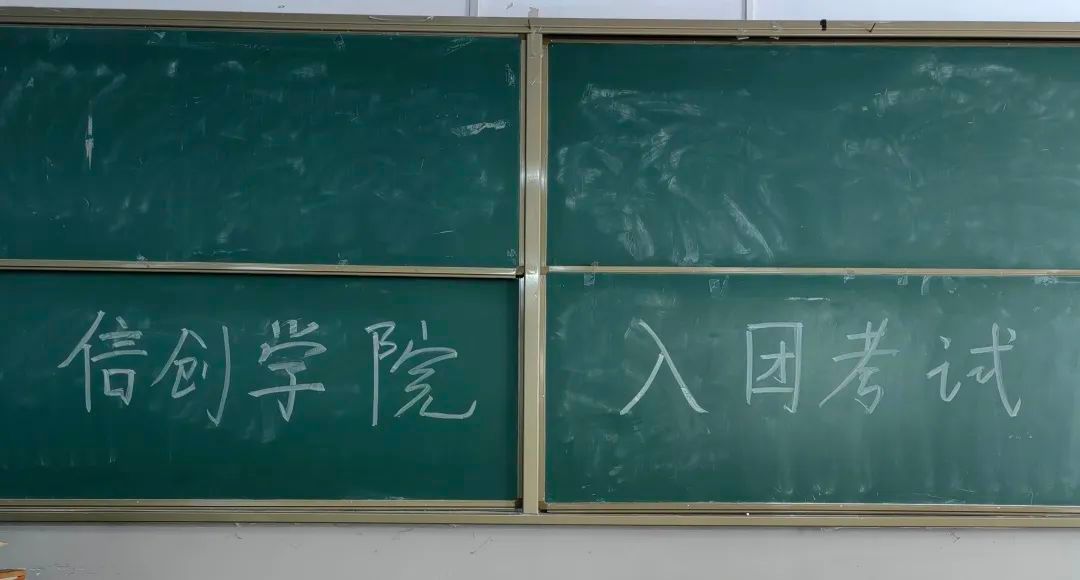 信创学院 入团考试